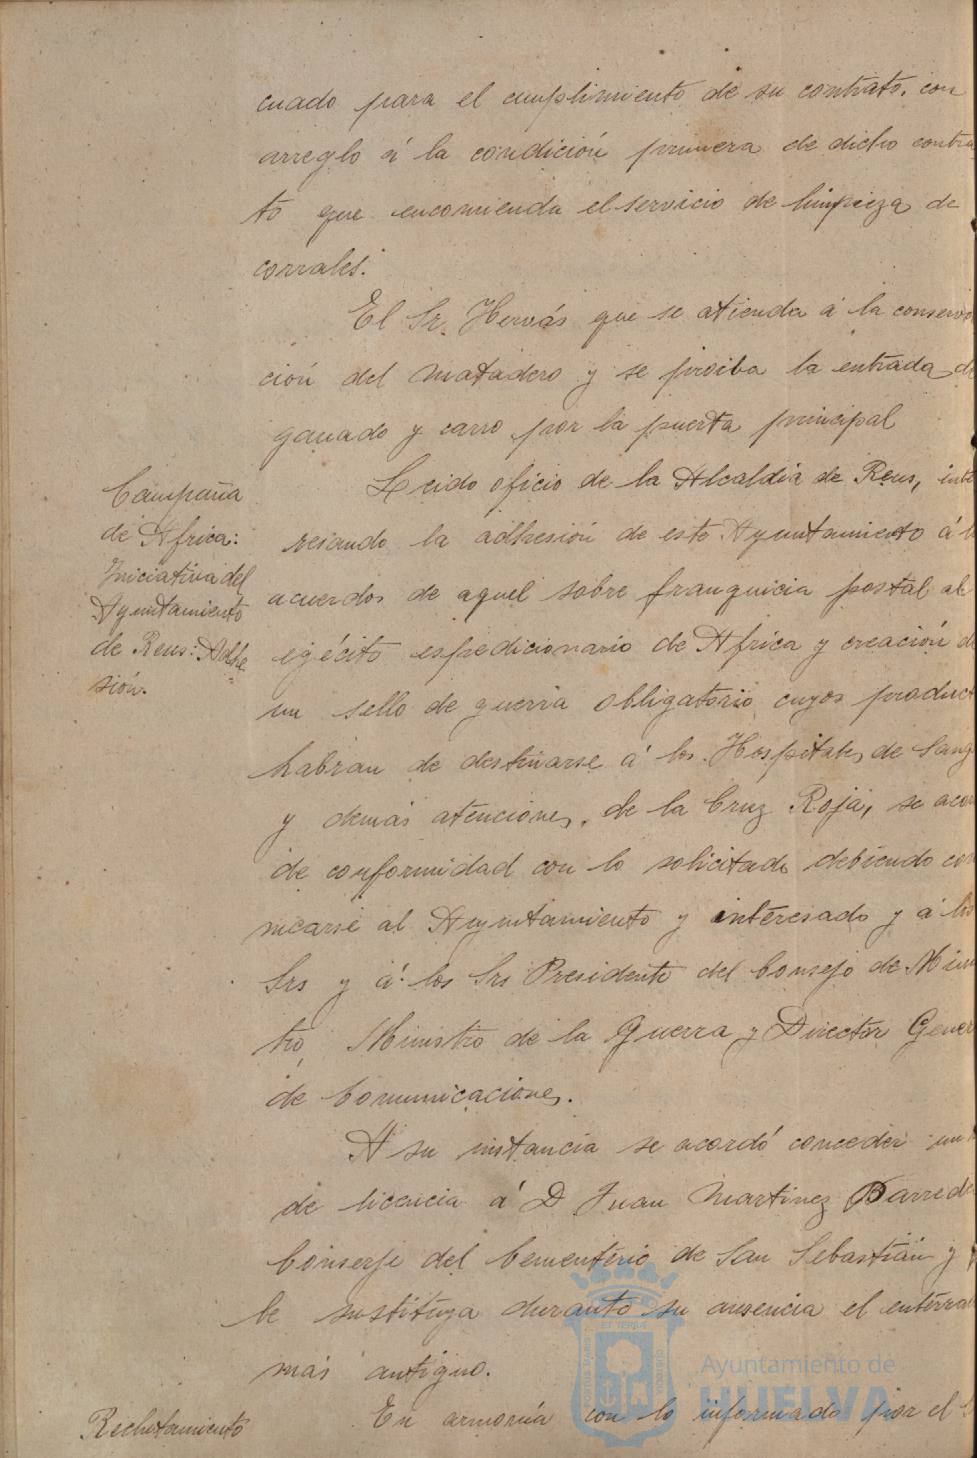 cuado para el cumplimiento de su contrato, con
arreglo á la condición primera de dicho contra
to que encomienda el servicio de limpieza de
corrales.
El Sr. Hervás que se atienda á la conserva
ción del matadero y se proiba la entrada de
ganado y carro por la puerta principal
Campaña
de Africa:
Iniciativa del
Ayuntamiento
de Reus: Adhe
sión.
Leido oficio de la Alcaldía de Reus, inte
resando la adhesión de este Ayuntamiento á
acuerdos de aquel sobre franquicia postal al
egécito espedicionario de Africa y creación de
un sello de guerra obligatorio cuyos product
habran de destinarse á los Hospitales de Sang
y demás atenciones, de la Cruz Roja, se acor
de conformidad con lo solicitado debiendo com
nicarse al Ayuntamiento y interesado y á los
Srs y á los Srs Presidente del Consejo de Minis
tro, Ministro de la Guerra y Director Gener
de Comunicaciones.
A su instancia se acordó conceder un
de licencia á D Juan Martinez Barreda
Conserje del Cementerio de San Sebastián y
le sustituya durante su ausencia el enterra
más antiguo.
Rechatamiento
En armonía con lo informado por el
Ayuntamiento de
HUELVA